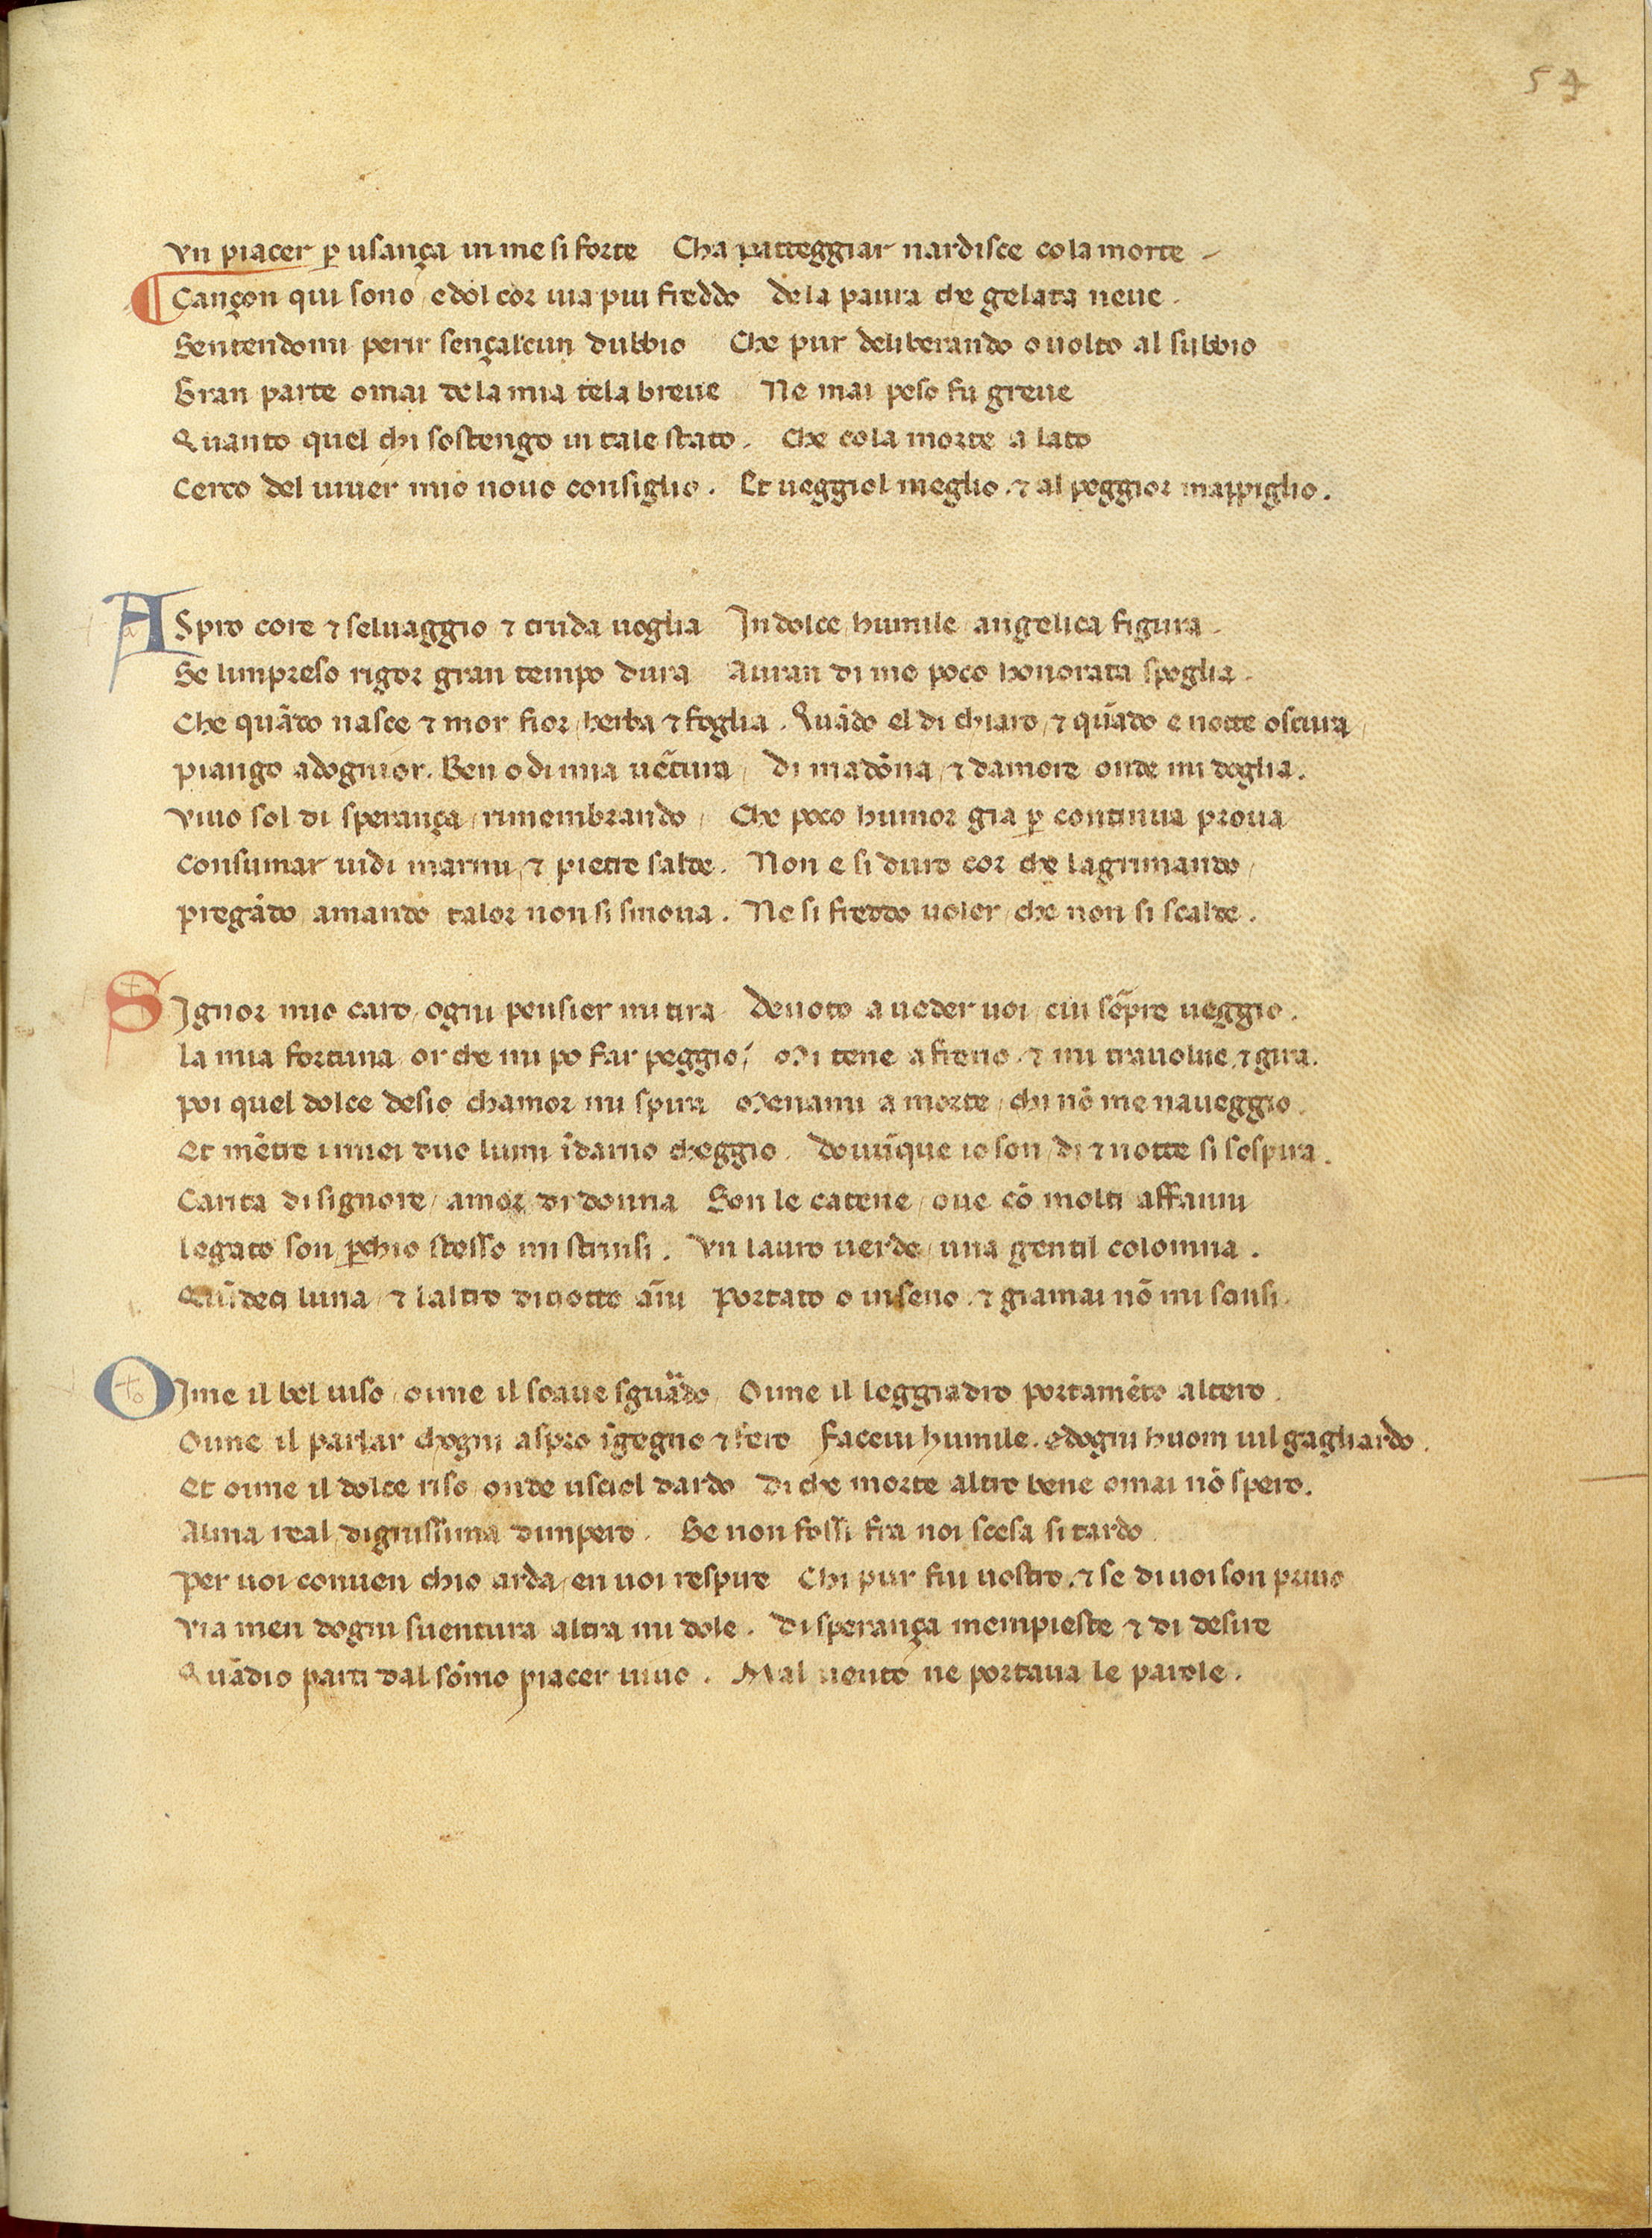 54
Vn piacer ꝑ usança in me si forte Cha patteggiar nardisce co la morte
Cançon qui sono / edol cor uia piu freddo de la paura che gelata neue .
Sentendomi perir sençalcun dubbio Che pur deliberando o uolto al subbio
Gran parte omai de la mia tela breue Ne mai peso fu greue
Quanto quel chi sostengo in tale stato . Che co la morte a lato
Cerco del uiuer mio nouo consiglio . Et ueggiol meglio . ⁊ al peggior mappiglio .
ASpro core ⁊ seluaggio ⁊ cruda uoglia In dolce / humile / angelica figura .
Se limpreso rigor gran tempo dura Auran di me poco honorata spoglia .
Che quādo nasce ⁊ mor fior / herba ⁊ foglia . Quādo el di chiaro / ⁊ quādo e notte oscura /
piango adogniior . Ben o di mia uētura / Di madōna / ⁊ damore onde mi doglia .
Viuo sol di sperança / rimembrando / Che poco humor gia ꝑ continua proua
Consumar uidi marmi / ⁊ pietre salde . Non e si duro cor che lagrimando /
pregādo / amando talor non si smoua . Ne si freddo uoler / che non si scalde .
SIgnor mio caro / ogni pensier mi tira Deuoto a ueder uoi / cui sēpre ueggio .
la mia fortuna / or che mi po far peggio / Mi tene a freno . ⁊ mi trauolue / ⁊ gira .
poi quel dolce desio chamor mi spira Menami a morte / chi nō me naueggio .
Et mētre i miei duo lumi īdarno cheggio . Douūque io son / di ⁊ notte si sospira .
Carita di signore / amor di donna Son le catene / oue cō molti affanni
legato son / ꝑchio stesso mi strinsi . Vn lauro uerde / una gentil colomna .
Quīdeci luna / ⁊ laltro diciotto āni Portato o in seno . ⁊ giamai nō mi scinsi .
OIme il bel uiso / oime il soaue sguādo / Oime il leggiadro portamēto altero .
Oime il parlar chogni aspro īgegno ⁊ fero Faceui humile . edogni huom uil gagliardo .
Et oime il dolce riso / onde usciol dardo Di che morte altro bene omai nō spero .
Alma real / dignissima dimpero . Se non fossi fra noi scesa si tardo .
Per uoi conuen chio arda / en uoi respire Chi pur fui uostro . ⁊ se di uoi son priuo
Via men dogni suentura altra mi dole . Di sperança mempieste ⁊ di desire
Quādio parti dal sōmo piacer uiuo . Mal uento ne portaua le parole .